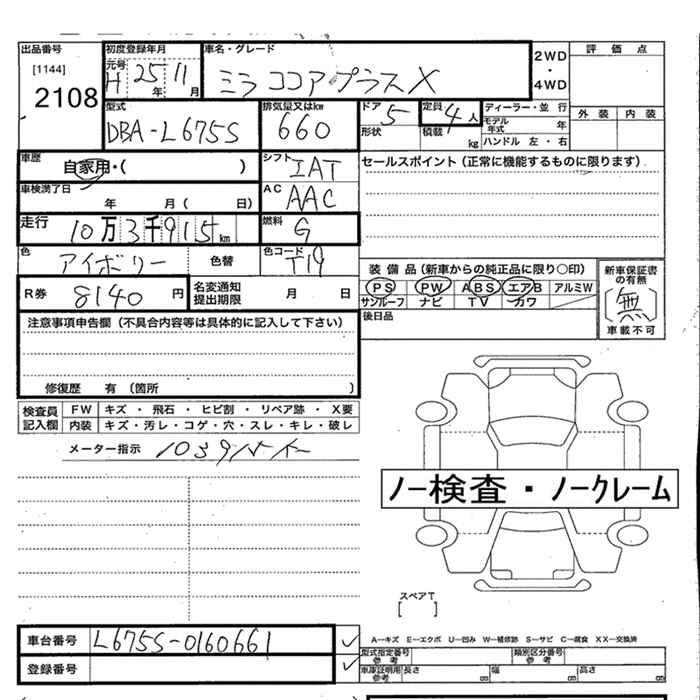 出品番号
[1144]
2108
初度登録年月
元号
H 25 年 11 月
車名・グレード
ミラ ココアプラス X
2WD
・
4WD
評 価 点
外 装 内 装
型式
DBA-L675S
排気量又はkw
660
ドア
5
形状
定員
4 人
積載
kg
ディーラー・並 行
モデル
年式 年
ハンドル 左・右
車歴
自家用・( )
シフト
IAT
セールスポイント (正常に機能するものに限ります)
車検満了日
年 月 ( 日)
AC
AAC
走行
10万3千915km
燃料
G
色
アイボリー
色替
色コード
T19
R券
8140 円
名変通知
提出期限
月 日
装 備 品 (新車からの純正品に限り〇印)
PS PW ABS エアB アルミW
サンルーフ ナビ TV カワ
後日品
新車保証書
の有無
無
車載不可
注意事項申告欄 (不具合内容等は具体的に記入して下さい)
修復歴 有 (箇所 )
検査員
記入欄
FW キズ ・ 飛石 ・ ヒビ割 ・ リペア跡 ・ X要
内装 キズ・汚レ・コゲ・穴・スレ・キレ・破レ
メーター指示
ノー検査・ノークレーム
スペアT
[ ]
A―キズ E―エクボ U―凹み W―補修跡 S―サビ C―腐食 XX―交換済
車台番号
L675S-0160661
登録番号
型式指定番号
参考
類別区分番号
参考
車庫証明用
参考
長さ cm 幅 cm 高さ cm